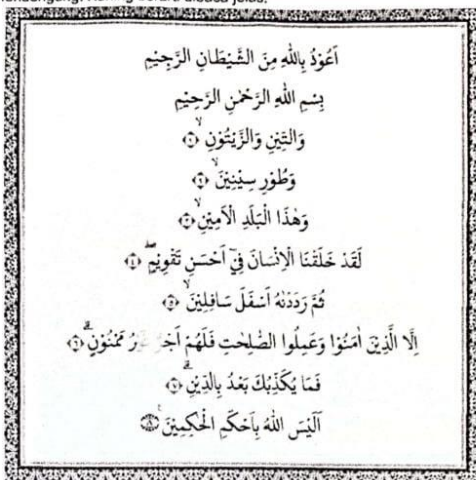 اَعُوْذُ بِاللهِ مِنَ الشَّيْطَانِ الرَّجِيْمِ
بِسْمِ اللهِ الرَّحْمٰنِ الرَّحِيْمِ
وَالتِّيْنِ وَالزَّيْتُوْنِۙ ﴿١﴾
وَطُوْرِ سِيْنِيْنَۙ ﴿٢﴾
وَهٰذَا الْبَلَدِ الْاَمِيْنِۙ ﴿٣﴾
لَقَدْ خَلَقْنَا الْاِنْسَانَ فِيْٓ اَحْسَنِ تَقْوِيْمٍۖ ﴿٤﴾
ثُمَّ رَدَدْنٰهُ اَسْفَلَ سَافِلِيْنَۙ ﴿٥﴾
اِلَّا الَّذِيْنَ اٰمَنُوْا وَعَمِلُوا الصّٰلِحٰتِ فَلَهُمْ اَجْرٌ غَيْرُ مَمْنُوْنٍۗ ﴿٦﴾
فَمَا يُكَذِّبُكَ بَعْدُ بِالدِّيْنِۗ ﴿٧﴾
اَلَيْسَ اللهُ بِاَحْكَمِ الْحٰكِمِيْنَ ﴿٨﴾